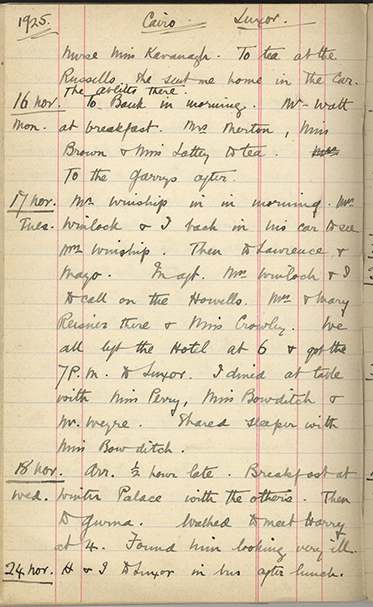 1925. Cairo. Luxor.
Nurse Miss Kavanagh. To tea at the
Russells, He sent me home in the Car.
The Abbitts there.
16 Nov. To Bank in morning. Mr Watt
Mon. at breakfast. Mrs Merton, Miss
Brown & Miss Lattey to tea.
To the Garrys after.
17 Nov. Mr Winship in in morning. Mrs
Tues. Winlock & I back in his car to see
Mrs Winship. Then to Lawrence &
Mayo. In aft. Mrs Winlock & I
to call on the Howells. Mrs & Mary
Reisner there & Miss Crowley. We
all left the Hotel at 6 & got the
7 P.M. to Luxor. I dined at table
with Miss Perry, Miss Bowditch &
Mr. Shared sleeper with
Miss Bowditch.
18 Nov. Arr. ½ hour late. Breakfast at
Wed. Winter Palace with the others. Then
to Gurna. Walked to meet Harry
at 4. Found him looking very ill.
24 Nov. H & I to Luxor in bus after lunch.